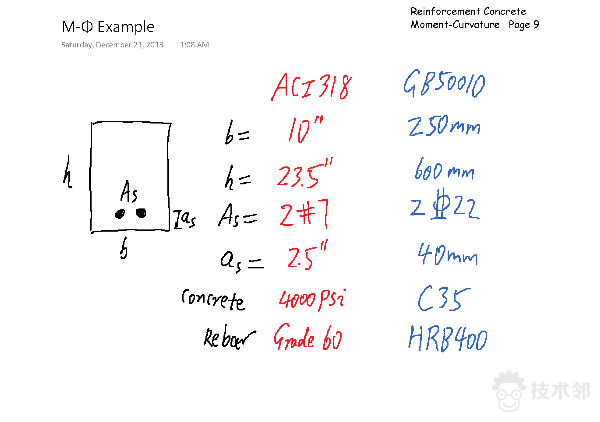 Reinforcement Concrete
M-Φ Example
Moment-Curvature Page 9
Saturday, December 21, 2013 1:08 AM
ACI318 GB50010
b= 10" 250mm
h h= 23.5" 600mm
As As= 2#7 2Φ22
as
b as= 2.5" 40mm
Concrete 4000psi C35
Rebar Grade 60 HRB400
技术邻